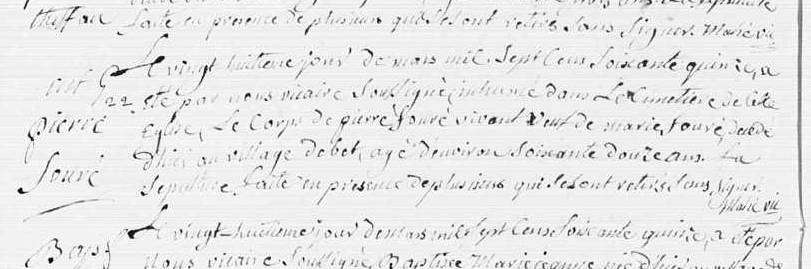 faite en presence de plusieurs qui se sont retirés sans signer. Marié vic
Le vingt huitieme jour de mars mil sept cens soixante quinze, a
22 eté par nous vicaire soussigné, inhumé dans le cimetiere de cette
pierre
eglise, le corps de pierre fouré vivant veuf de marie fouré, decedé
d'hier au village de bet, agé d'environ soixante douze ans. La
fouré
sepulture faite en presence de plusieurs qui se sont retirés sans signer.
Marié vic
Le vingt-huitieme jour de mars mil sept cens soixante quinze, a eté par
Bap
nous vicaire soussigné, Baptisée Marie jeanne née d'hier